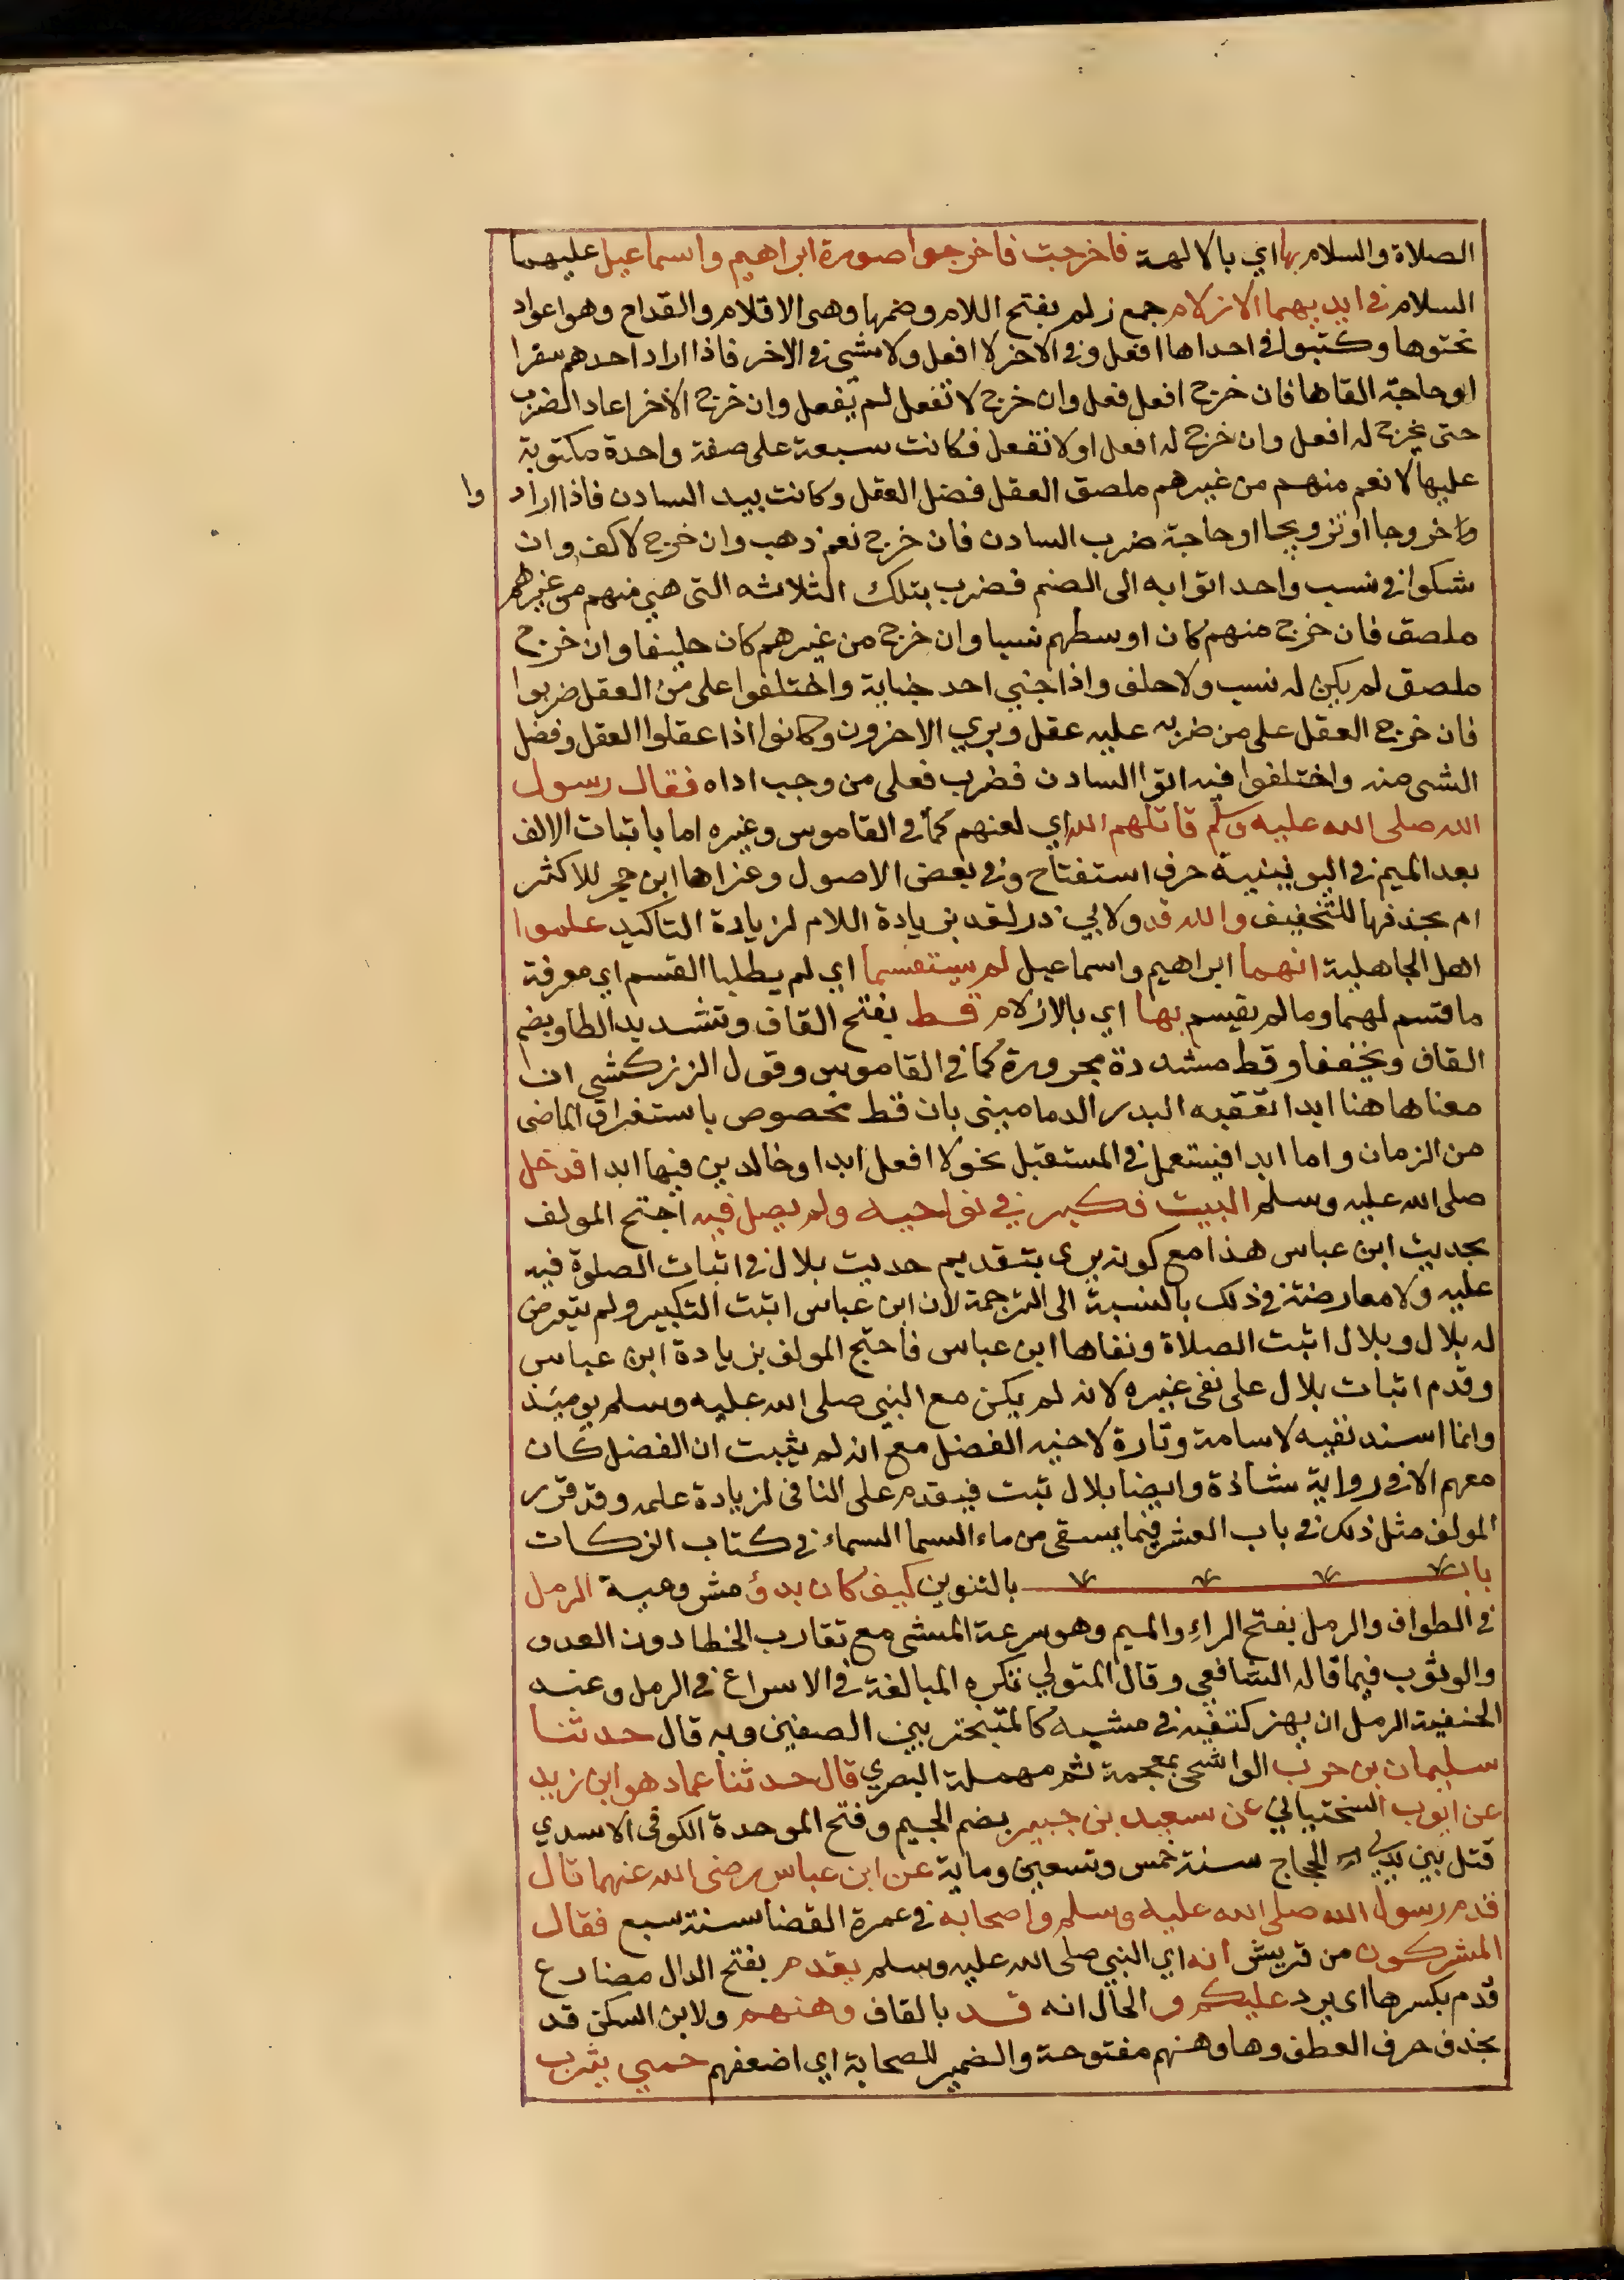 الصلاة والسلام بها اي بالالهة فاخرجت فاخرجوا صورة ابراهيم واسماعيل عليهما
السلام في ايديهما الازلام جمع زلم بفتح اللام وضمها وهي الاقلام والقداح وهو اعواد
نحتوها وكتبوا في احداها افعل وفي الاخر لا افعل ولا شئ في الاخر فاذا اراد احدهم سفرا
او حاجة القاها فان خرج افعل فعل وان خرج لا تفعل لم يفعل وان خرج الاخر اعاد الضرب
حتى يخرج له افعل وان خرج له افعل او لا تفعل فكانت سبعة على صفة واحدة مكتوبة
عليها لا نعم منهم من غيرهم ملصق العقل فضل العقل وكانت بيد السادن فاذا اراد وا
وا خروجا او تزويجا او حاجة ضرب السادن فان خرج نعم ذهب وان خرج لا كف وان
شكوا في نسب واحد اتوا به الى الصنم فضرب بتلك الثلاثه التي هي منهم من غيرهم
ملصق فان خرج منهم كان اوسطهم نسبا وان خرج من غيرهم كان حليفا وان خرج
ملصق لم يكن له نسب ولا حلف واذا جني احد جناية واختلفوا على من العقل ضربوا
فان خرج العقل على من ضرب عليه عقل وبري الاخرون وكانوا اذا عقلوا العقل وفضل
الشي منه واختلفوا فيه اتوا السادن فضرب فعلى من وجب اداه فقال رسول
الله صلى الله عليه وسلم قاتلهم الله اي لعنهم كما في القاموس وغيره اما باثبات الالف
بعد الميم في اليونينية حرف استفتاح وفي بعض الاصول وعزاها ابن حجر للاكثر
ام بحذفها للتخفيف والله قد ولابي ذر لقد بزيادة اللام لزيادة التاكيد علموا
اهل الجاهلية انهما ابراهيم واسماعيل لم يستقسما اي لم يطلبا القسم اي معرفة
ما قسم لهما وما لم يقسم بها اي بالازلام قط بفتح القاف وتشديد الطا وبضم
القاف ويخففا وقط مشددة مجرورة كما في القاموس وقول الزركشي ان
معناها هنا ابدا تعقبه البدر الدماميني بان قط مخصوص باستغراق الماضي
من الزمان واما ابدا فيستعمل في المستقبل نحو لا افعل ابدا وخالدين فيها ابدا فدخل
صلى الله عليه وسلم البيت فكبر في نواحيه ولم يصل فيه احتج المولف
بحديث ابن عباس هذا مع كونه يرى بتقديم حديث بلال في اثبات الصلوة فيه
عليه ولا معارضة في ذلك بالنسبة الى الترجمة لان ابن عباس اثبت التكبير ولم يتعرض
له بلال وبلال اثبت الصلاة ونفاها ابن عباس فاحتج المولف بزيادة ابن عباس
وقدم اثبات بلال على نفي غيره لانه لم يكن مع النبي صلى الله عليه وسلم يوميذ
وانما اسند نفيه لاسامة وتارة لاخيه الفضل مع انه لم يثبت ان الفضل كان
معهم الا في رواية شاذة وايضا بلال ثبت فيقدم على النافي لزيادة علمه وقد قرر
المولف مثل ذلك في باب العشر فيما يسقى من ماء السما السماء في كتاب الزكات
باب بالتنوين كيف كان بدؤ مشروعية الرمل
في الطواف والرمل بفتح الراء والميم وهو سرعة المشي مع تقارب الخطا دون العدو
والوثوب فيما قاله الشافعي وقال المتولي تكره المبالغة في الاسراع في الرمل وعند
الحنفية الرمل ان يهز كتفيه في مشيه كالمتبختر بين الصفين وبه قال حدثنا
سليمان بن حرب الواشحي بمعجمة ثم مهملة البصري قال حدثنا عماد هو ابن زيد
عن ايوب السختيالي عن سعيد بن جبير بضم الجيم وفتح الموحدة الكوفي الاسدي
قتل بين يدي الحجاج سنة خمس وتسعين وماية عن ابن عباس رضي الله عنهما قال
قدم رسول الله صلى الله عليه وسلم واصحابه في عمرة القضا سنة سبع فقال
المشركون من قريش انه اي النبي صلى الله عليه وسلم يقدم بفتح الدال مضارع
قدم بكسرها اي يرد عليكم و الحال انه قد بالقاف وهنهم ولابن السكن قد
بحذف حرف العطف وها وهنهم مفتوحة والضمير للصحابة اي اضعفهم حمي يثرب